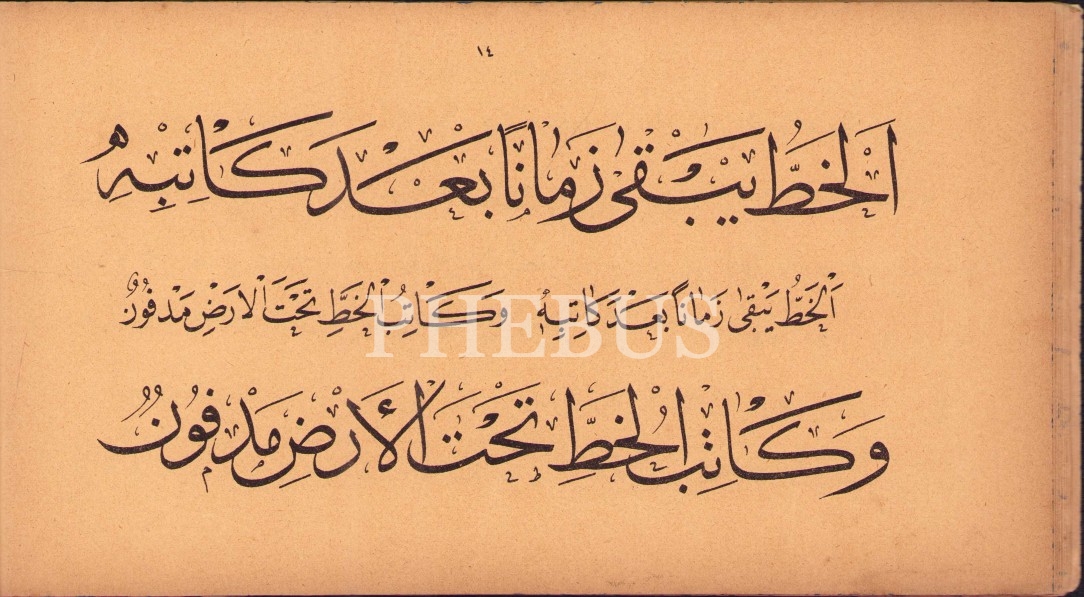 ١٤
اَلْخَطُّ يَبْقٰى زَمَانًا بَعْدَ كَاتِبِهِ
اَلْخَطُّ يَبْقٰى زَمَانًا بَعْدَ كَاتِبِهِ وَكَاتِبُ الْخَطِّ تَحْتَ الْارَضِ مَدْفُونٌ
PHEBUS
وَكَاتِبُ الْخَطِّ تَحْتَ الْأَرْضِ مَدْفُونٌ